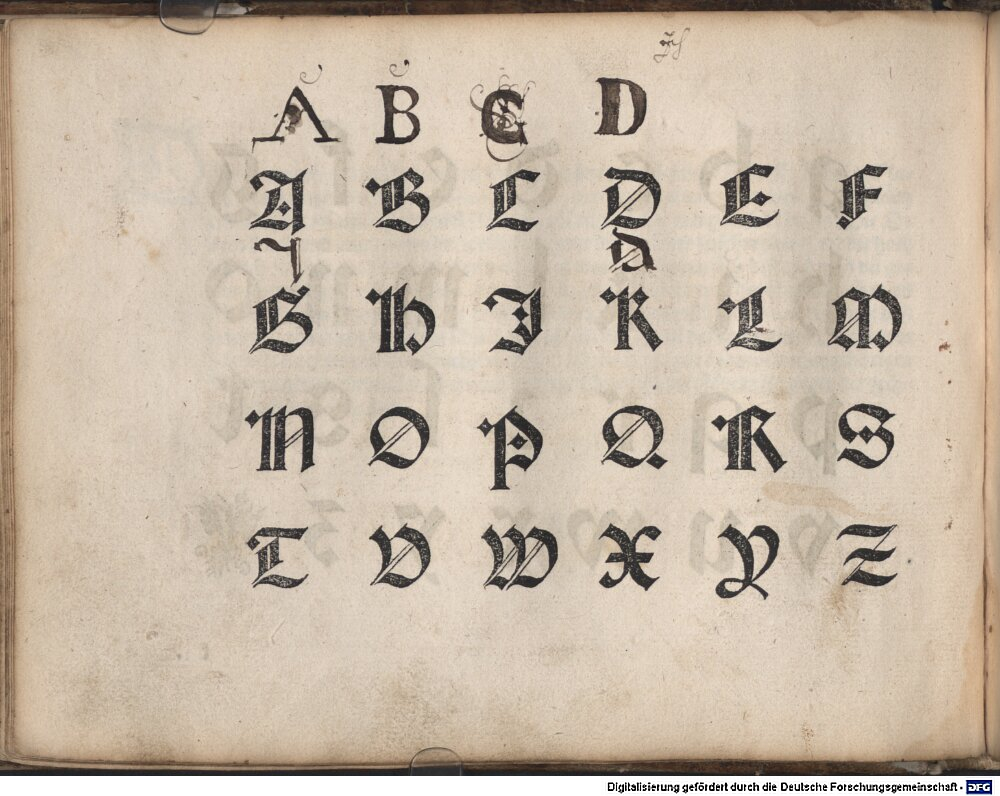 A B C D
A B C D E F
G H I K L M
N O P Q R S
T V W X Y Z
Digitalisierung gefördert durch die Deutsche Forschungsgemeinschaft - DFG